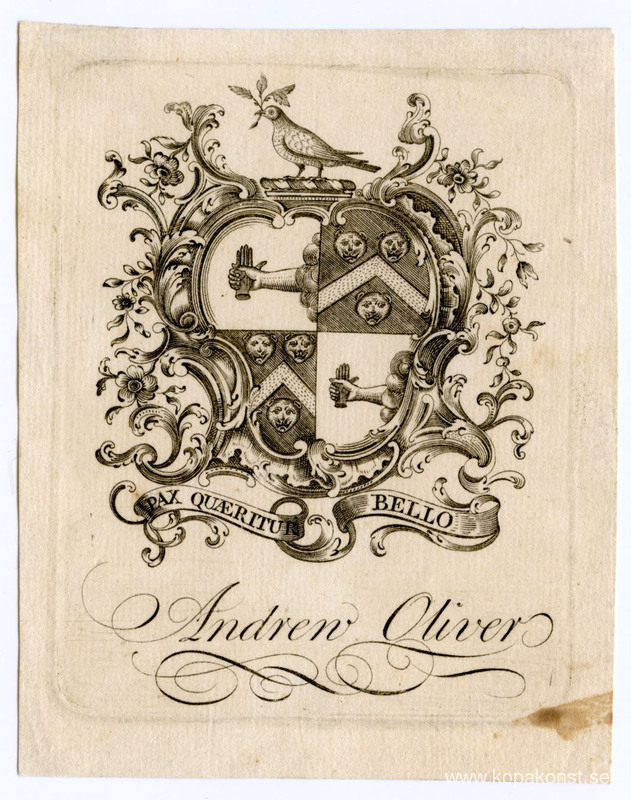 PAX QUÆRITUR BELLO
Andrew Oliver
www.kopakonst.se